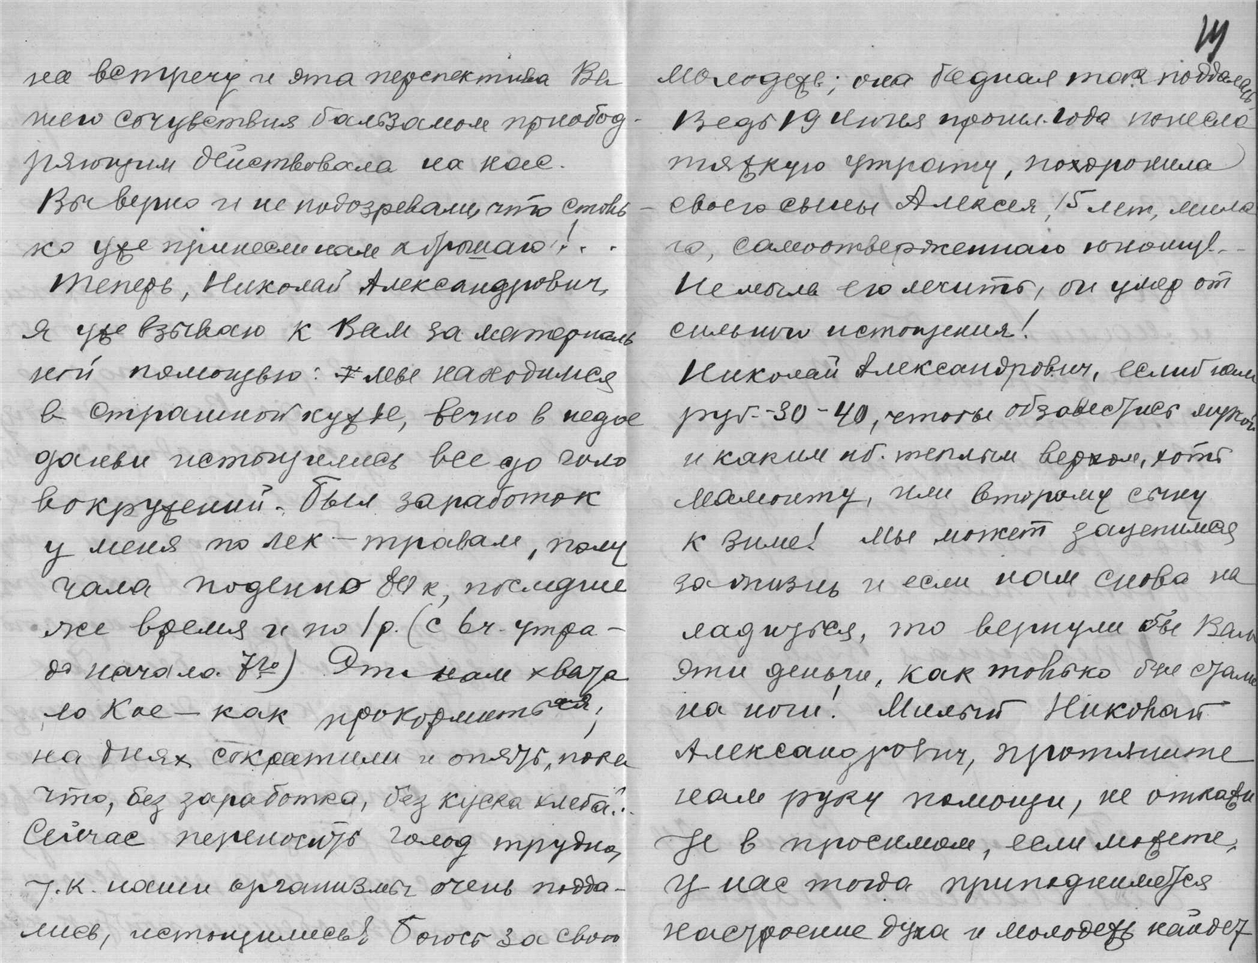 на встречу и эта перспектива Ва
шего сочувствия бальзамом приобод-
ряющим действовала на нас.
Вы верно и не подозревали, что столь-
ко уже принесли нам хорошаго!..
Теперь, Николай Александрович,
я уже взываю к Вам за материаль
ной помощью: мы находимся
в страшной нужде, вечно в недое
дании истощились все до голо
вокружений. Был заработок
у меня по лек-травам, полу
чала поденно к, последнее
же время и по 1 р. (с 6 ч. утра-
до начала 7го) Это нам хвата
ло кое-как прокормиться;
на днях сократили и опять, пока
что, без заработка, без куска хлеба!..
Сейчас переносить голод трудно,
т.к. наши организмы очень подда-
лись, истощились! Боюсь за свою
14
молодежь; она бедная так поддалась
Ведь 19 июня прошл. года понесла
тяжкую утрату, похоронила
своего сына Алексея, 15 лет, мила
го, самоотверженнаго юношу!..
Не могла его лечить, он умер от
сильного истощения!
Николай Александрович, если б нам
руб.-30-40, чтобы обзавестись мукой
и каким нб. теплым верхом, хоть
Мамонту, или второму сыну
к зиме! Мы может зацепимся
за жизнь и если нам снова на
ладиться, то вернули бы Вам
эти деньги, как только бы стали
на ноги! Милый Николай
Александрович, протяните
нам руку помощи, не откажи
те в просимом, если можете,
у нас тогда приподнимется
настроение духа и молодежь найдет